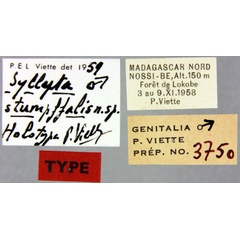 P E L Viette det 1959
Syllepta ♂
stumpffalis n. sp.
Holotype P. Viette
TYPE
MADAGASCAR NORD
NOSSI-BE, Alt. 150 m
Forêt de Lokobe
3 au 9.XI.1958
P. Viette
GENITALIA ♂
P. VIETTE
PRÉP. NO. 3750